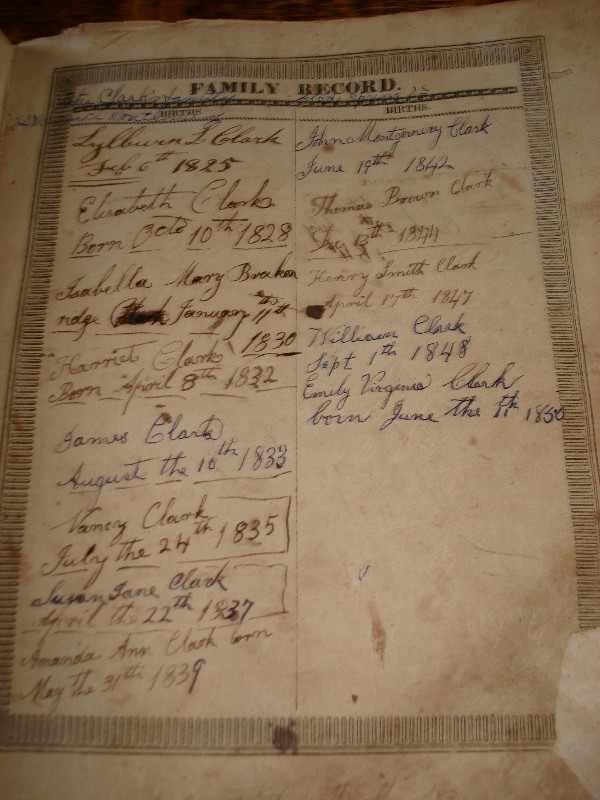 FAMILY RECORD.
Clark's
BIRTHS.
Lylburn L Clark
Feb 6th 1825
Elisabeth Clark
Born Octo 10th 1828
Isabella Mary Bracken
ridge Clark January 11th
1830
Harriet Clark
Born April 8th 1832
James Clark
August the 10th 1833
Nancy Clark
July the 24th 1835
Susan Jane Clark
April the 22th 1837
Amanda Ann Clark born
May the 31th 1839
BIRTHS.
John Montgomery Clark
June 19th 1842
Thomas Brown Clark
13th 1844
Henry Smith Clark
April 17th 1847
William Clark
Sept 1th 1848
Emily Virginia Clark
born June the 11th 1850